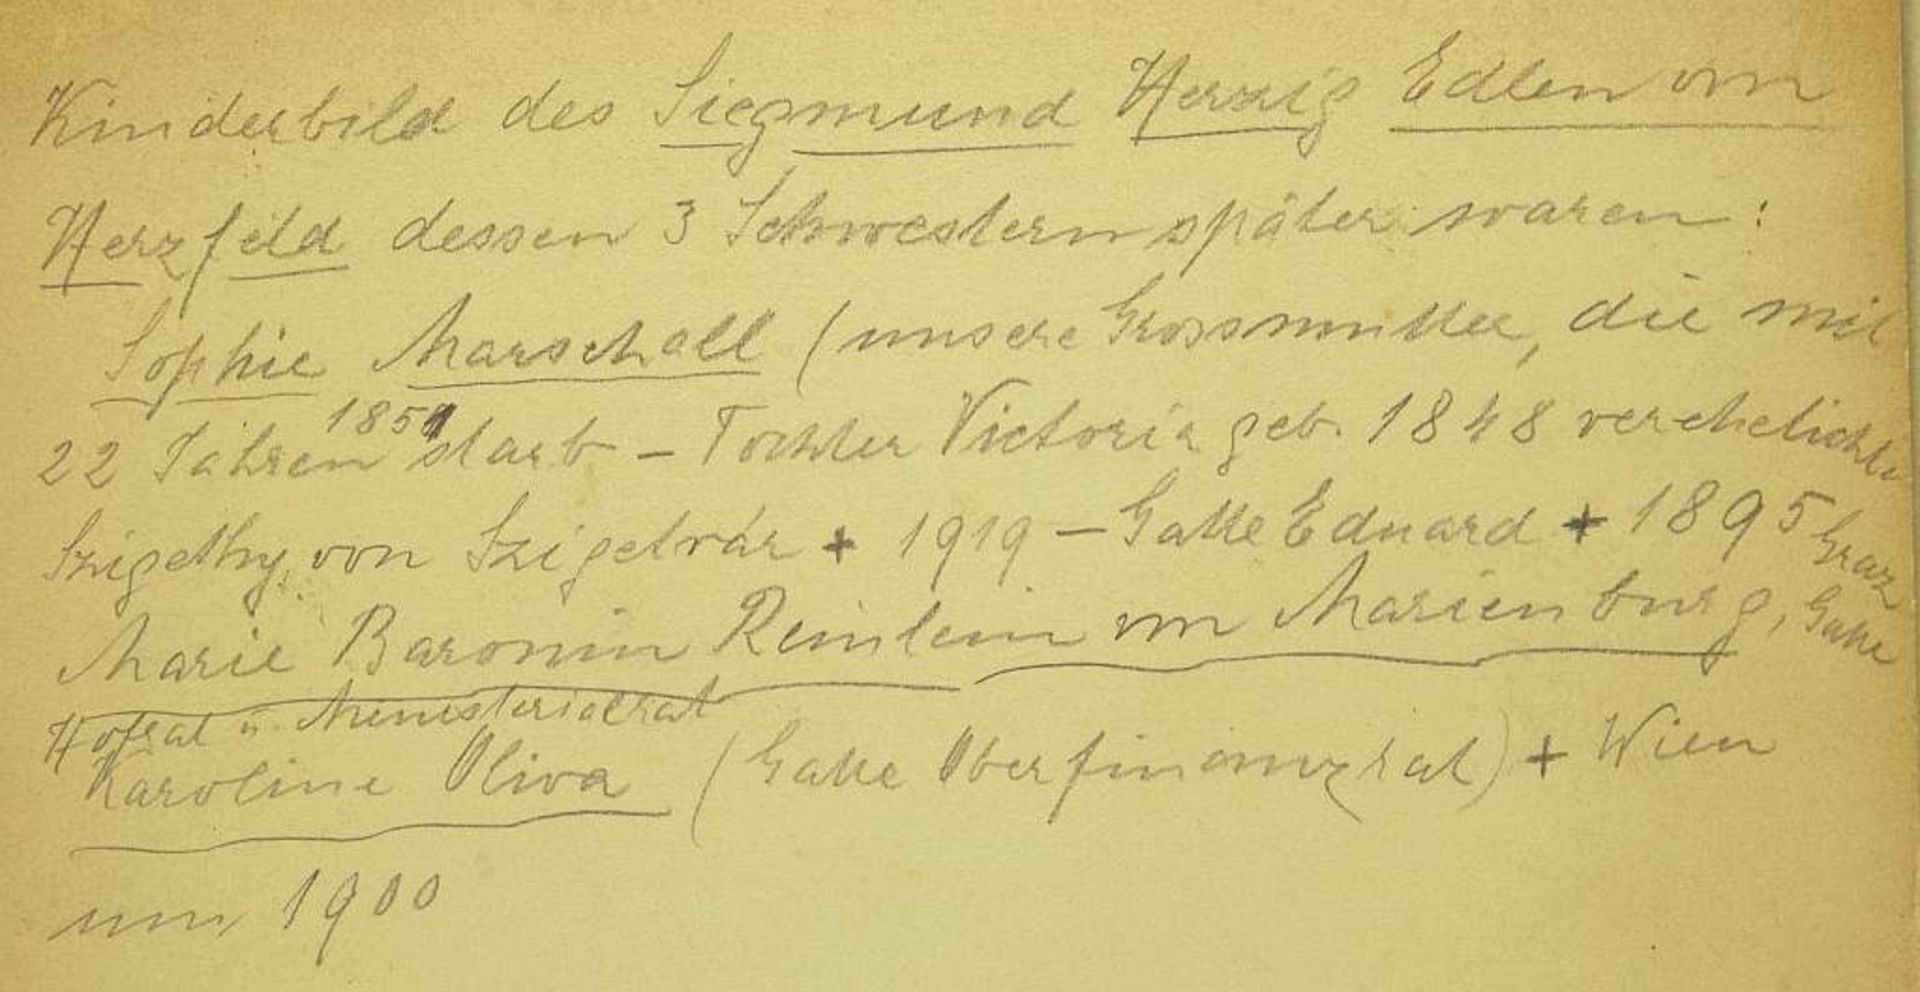 Kinderbild des Siegmund Herzig Edlen von
Herzfeld dessen 3 Schwestern später waren:
Sophie Marschall (unsere Grossmutter, die mit
22 Jahren 1851 starb – Tochter Victoria geb. 1848 verehelichte
Szigethy von Szigetvár + 1919 – Gatte Eduard + 1895 Graz
Marie Baronin Reinlein von Marienburg, Gatte
Hofrat u. Ministerialrat
Karoline Oliva (Gatte Oberfinanzrat) + Wien
um 1900